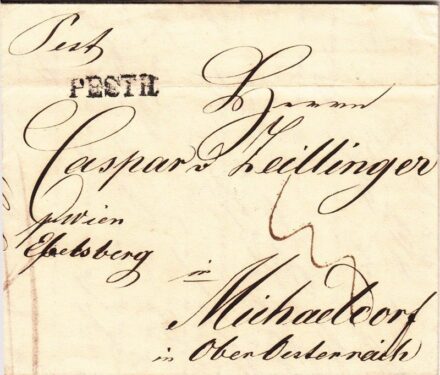 Pest
PESTH
Herrn
Caspar v Zeillinger
p Wien
Ebelsberg
in
Michaeldorf
in OberOesterreich